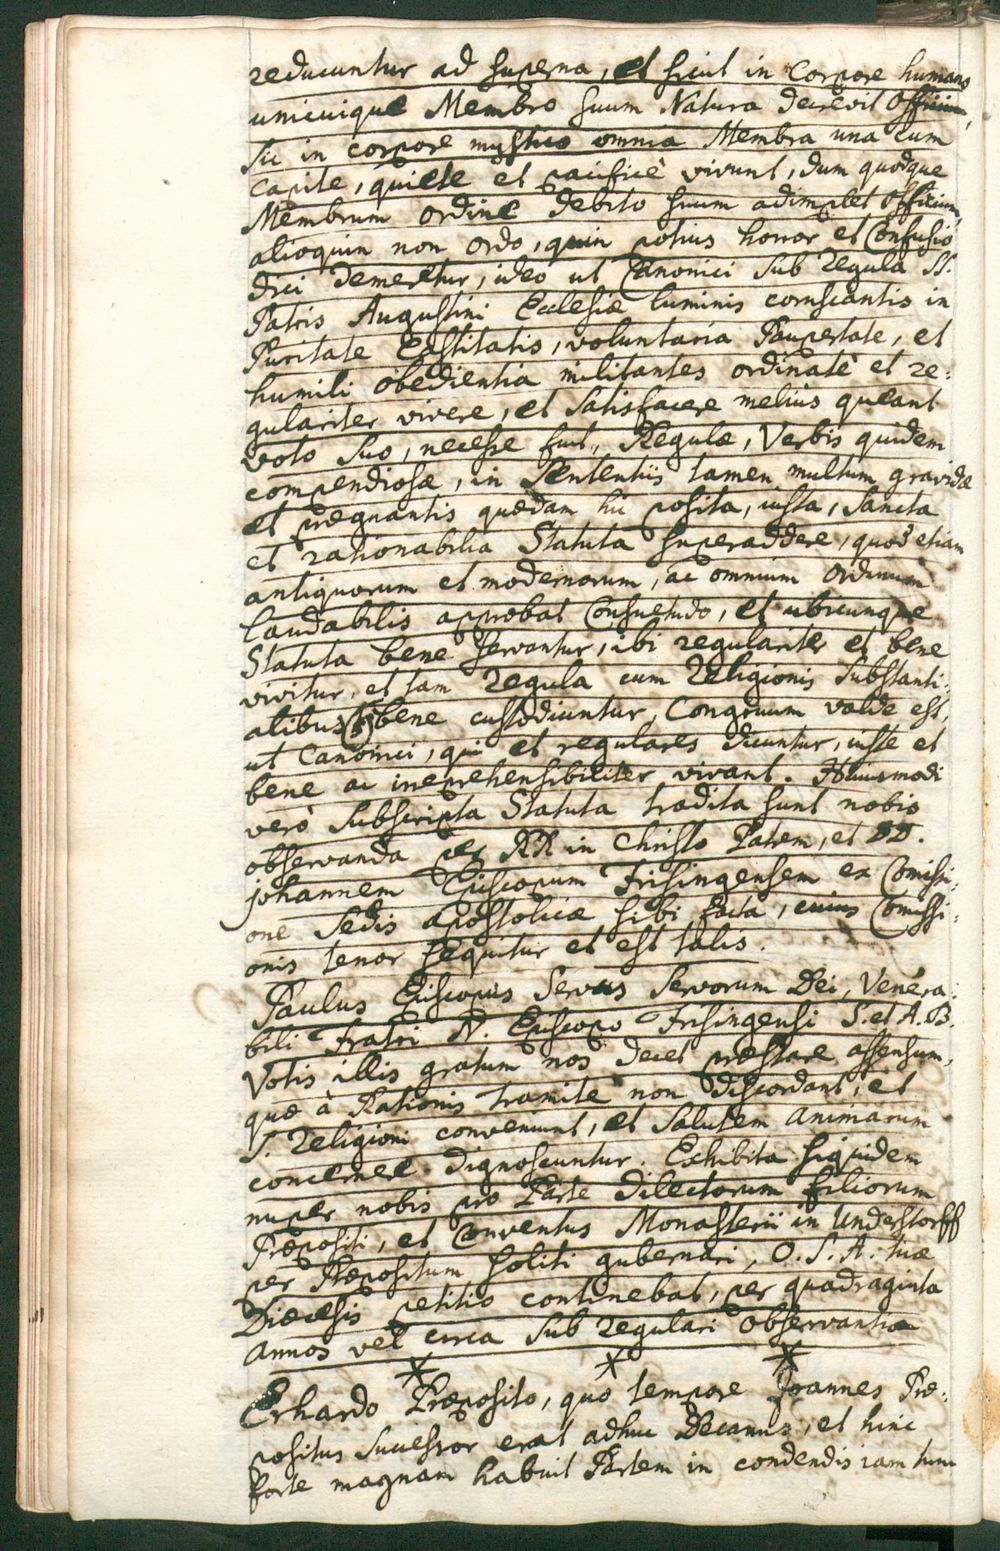 reducuntur ad superna, et sicut in Corpore humano
unicuique Membro suum Natura decrevit officium,
sic in corpore mystico omnia Membra una cum
Capite, quiete et pacificè vivunt, dum quodque
Membrum ordine debito suum adimplet officium,
alioquin non ordo, quin potius horror et Confusio
dici demeretur, ideo ut Canonici sub regula SS.
Patris Augustini Ecclesiæ luminis coruscantis in
Puritate Castitatis, voluntaria Paupertate, et
humili obedientia militantes ordinatè et re:
gulariter vivere, et satisfacere melius queant
voto suo, necesse fuit, Regulæ, Verbis quidem
compendiosæ, in Sententiis tamen multum gravidæ
et prægnantis quædam hic posita, iusta, Sancta
et rationabilia Statuta superaddere, quod etiam
antiquorum et modernorum, ac omnium Ordinum
laudabilis approbat Consuetudo, et ubicunque
Statuta bene servantur, ibi regulariter et bene
vivitur, et tam regula cum Religionis substanti:
alibus bene custodiuntur, Congruum valde est,
ut Canonici, qui et regulares dicuntur, iuste et
bene ac irreprehensibiliter vivant. Huiusmodi
verò subscripta Statuta tradita sunt nobis
observanda per RR in Christo Patrem, et DD.
Johannem Episcopum Frisingensem ex Comissi:
one Sedis apostolicæ sibi facta, cuius Comissi:
onis tenor sequitur et est talis.
Paulus Episcopus Servus Servorum Dei, Venera:
bili Fratri N. Episcopo Frisingensi S. et A. B.
Votis illis gratum nos decet præstare assensum,
quæ à Rationis tramite non discordant, et
S. religioni conveniunt, et Salutem animarum
concernere dignoscuntur. Exhibita siquidem
nuper nobis pro Parte dilectorum filiorum
Præpositi, et Conventus Monasterii in Understorff
per Præpositum soliti gubernari, O. S. A. tuæ
Diœcesis petitio continebat, per quadraginta
annos vel circa sub regulari observantia
* * *
Erhardo Præposito, quo tempore Joannes Præ:
positus Successor erat adhuc Decanus, et hinc
forte magnam habuit Partem in condendis iam tum